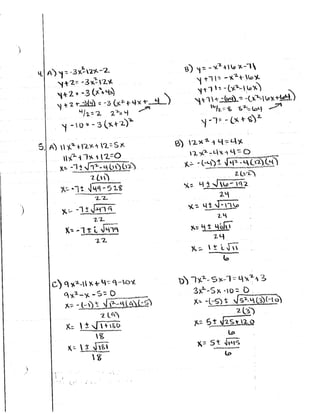 4. A) y = -3x²-12x-2
y+2 = -3x²-12x
y+2 = -3(x²+4x)
y+2+ -3(4) = -3(x²+4x+ 4 )
4/2=2 2²=4
y-10 = -3(x+2)²
B) y = -x²+16x-71
y+71 = -x²+16x
y+71 = -(x²-16x)
y+71+ -(64) = -(x²-16x+64)
16/2=8 8²=64
y-7 = -(x+8)²
5. A) 11x²+12x+12=5x
11x²+7x+12=0
x= -7± √7²-4(11)(12)
2(11)
x= -7± √49-528
22
x= -7± √-479
22
x= -7± i √479
22
B) 12x²+4=4x
12x²-4x+4=0
x= -(-4)± √4²-4(12)(4)
2(12)
x= 4± √16-192
24
x= 4± √-176
24
x= 4± 4i√11
24
x= 1± i√11
6
C) 9x²-11x+4=9-10x
9x²-x-5=0
x= -(-1)± √1²-4(9)(-5)
2(9)
x= 1± √1+180
18
x= 1± √181
18
D) 7x²-5x-7=4x²+3
3x²-5x-10=0
x= -(-5)± √5²-4(3)(-10)
2(3)
x= 5± √25+120
6
x= 5± √145
6